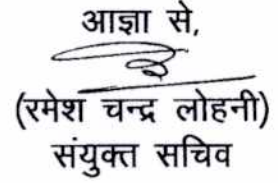 आज्ञा से,
(रमेश चन्द्र लोहनी)
संयुक्त सचिव